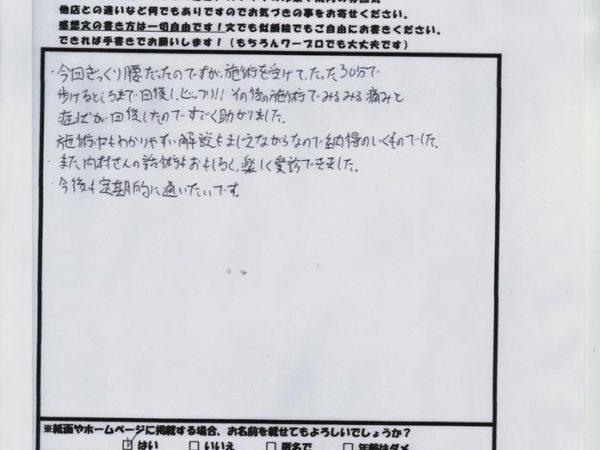 他店との違いなど何でもありですのでお気づきの事をお寄せください。
感想文の書き方は一切自由です!文でも似顔絵でもご自由にお書きください。
できれば手書きでお願いします!(もちろんワープロでも大丈夫です)
・今回ぎっくり腰だったのですが、施術を受けて、たった30分で
歩けるところまで回復し、ビックリ!!その後の施術でみるみる痛みと
症状が回復したのですごく助かりました。
施術中もわかりやすい解説をまじえながらなので納得のいくものでした。
・また内村さんの話術もおもしろく、楽しく受診できました。
・今後も定期的に通いたいです。
※紙面やホームページに掲載する場合、お名前を載せてもよろしいでしょうか?
はい いいえ 匿名で 年齢はダメ